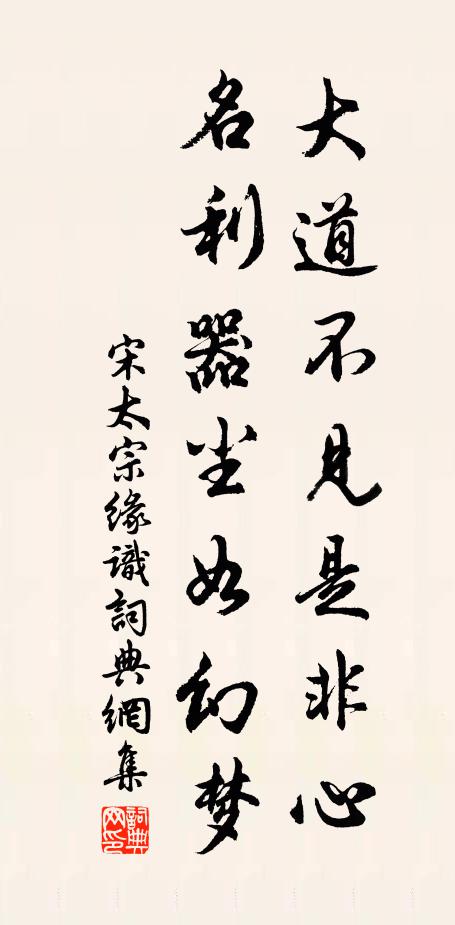 大道不见是非心
名利器尘如幻梦
宋太宗缘識詞典網集
詞典网印